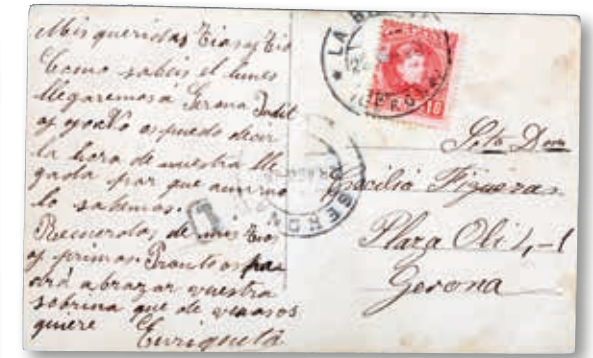 Mis queridas Tias y Tio
Como sabeis el lunes
llegaremos á Gerona Judit
y yo no os puedo decir
la hora de nuestra lle
gada por que aun no
lo sabemos.
Recuerdos de mis tios
y primos. Pronto os po
drá abrazar vuestra
sobrina que de veras os
quiere Enriqueta
LA B
GERONA
10
GERONA
Cecilia Figueras
Plaza Oli 1,-1
Gerona